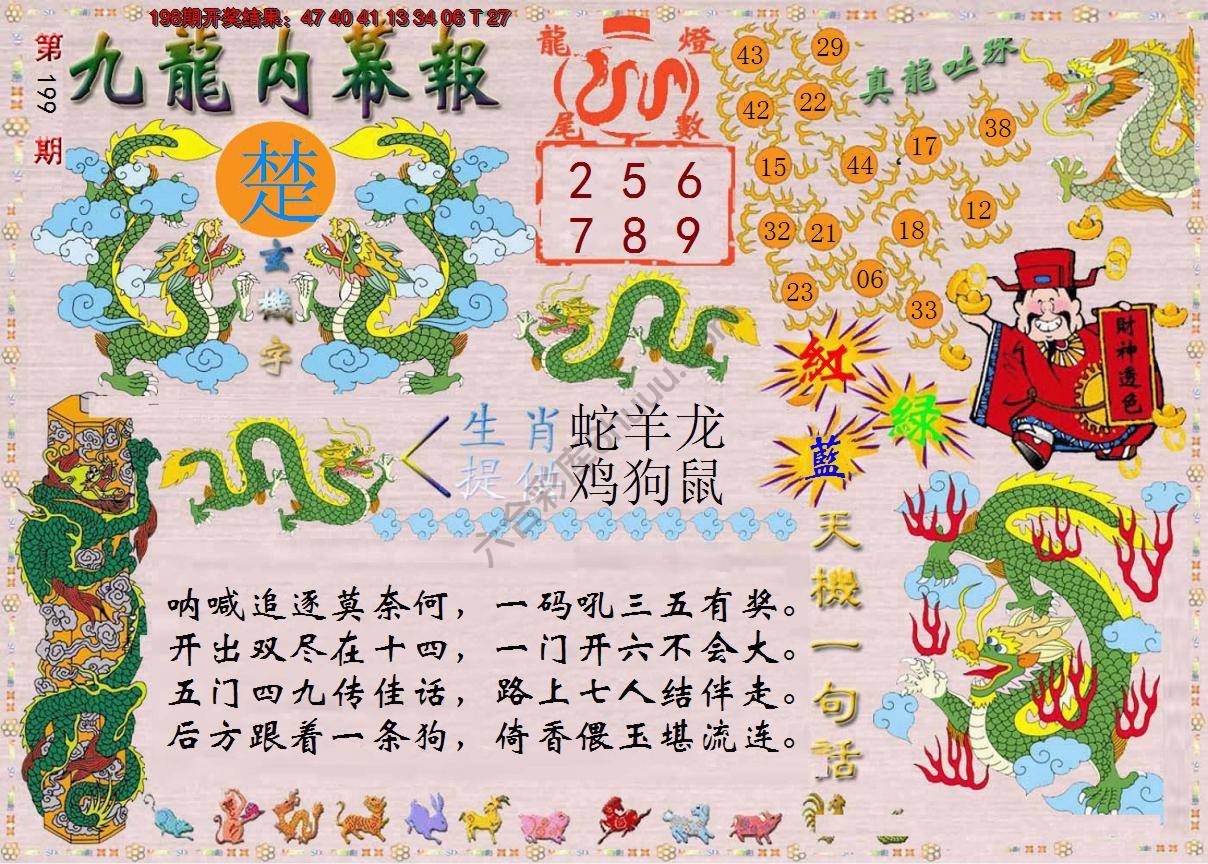 198期开奖结果：47 40 41 13 34 06 T 27
第199期
九龍内幕報
楚
玄機字
龍燈尾數
2 5 6
7 8 9
真龍吐珠
43 29
42 22
15 44 17 38
32 21 18 12
23 06 33
財神透色
紅
綠
藍
生肖 蛇羊龙
提供 鸡狗鼠
天機一句話
呐喊追逐莫奈何，一码吼三五有奖。
开出双尽在十四，一门开六不会大。
五门四九传佳话，路上七人结伴走。
后方跟着一条狗，倚香偎玉堪流连。